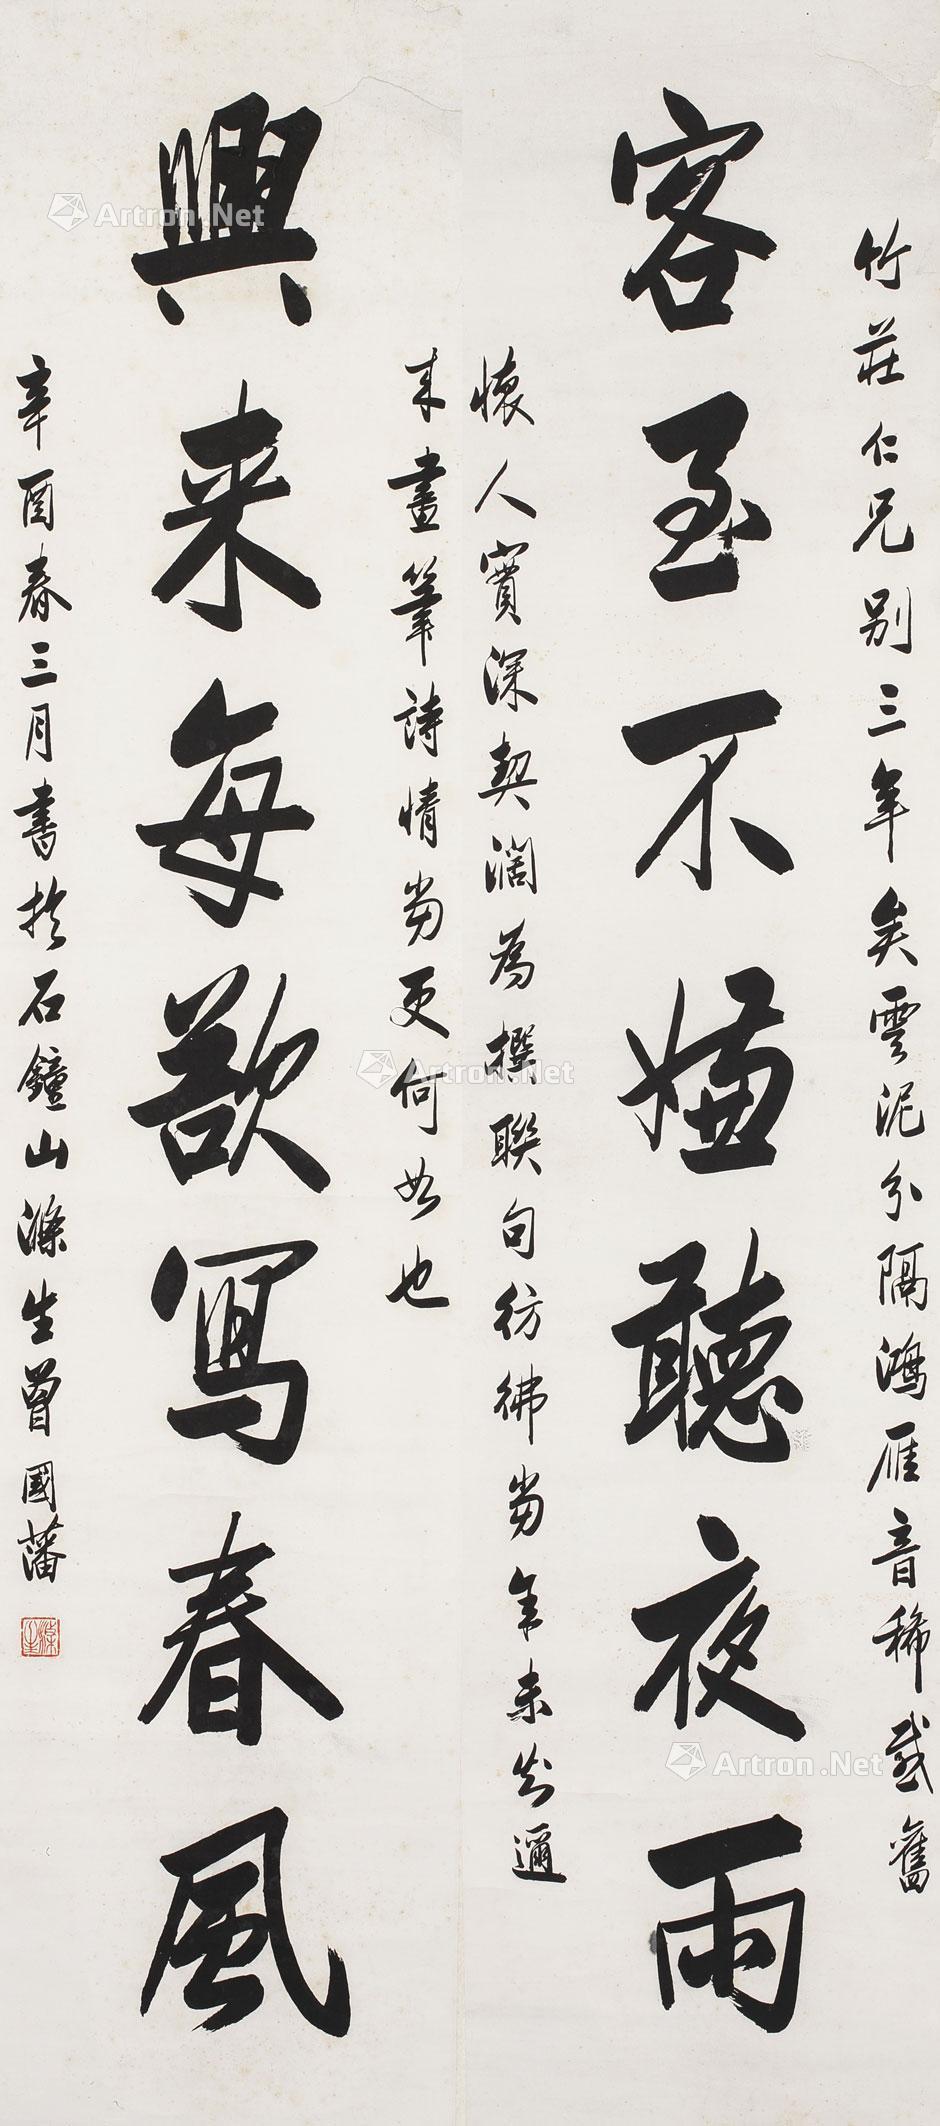 竹莊仁兄別三年矣雲泥分隔鴻雁音稀感舊
客至不嫌聽夜雨
懷人實深契濶為撰聯句彷彿當年未知邇
來畫筆詩情當更何如也
興來每欲寫春風
辛酉春三月書於石鐘山滌生曾國藩
滌生
Artron.Net
Artron.Net
Artron.Net